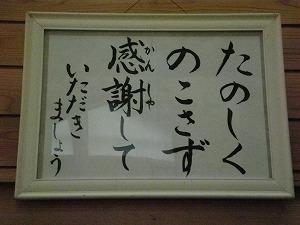 たのしく
のこさず
感謝して
かんしゃ
いただき
ましょう